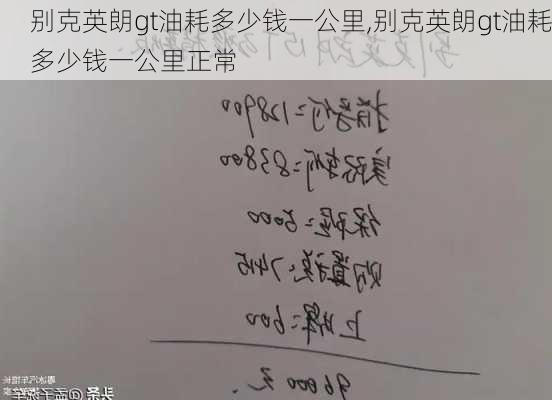 别克英朗gt油耗多少钱一公里,别克英朗gt油耗
多少钱一公里正常
指导价=128900
实际车价=83800
保险=5000
购置税=7415
上牌=600
96000元
头条@孟子说车